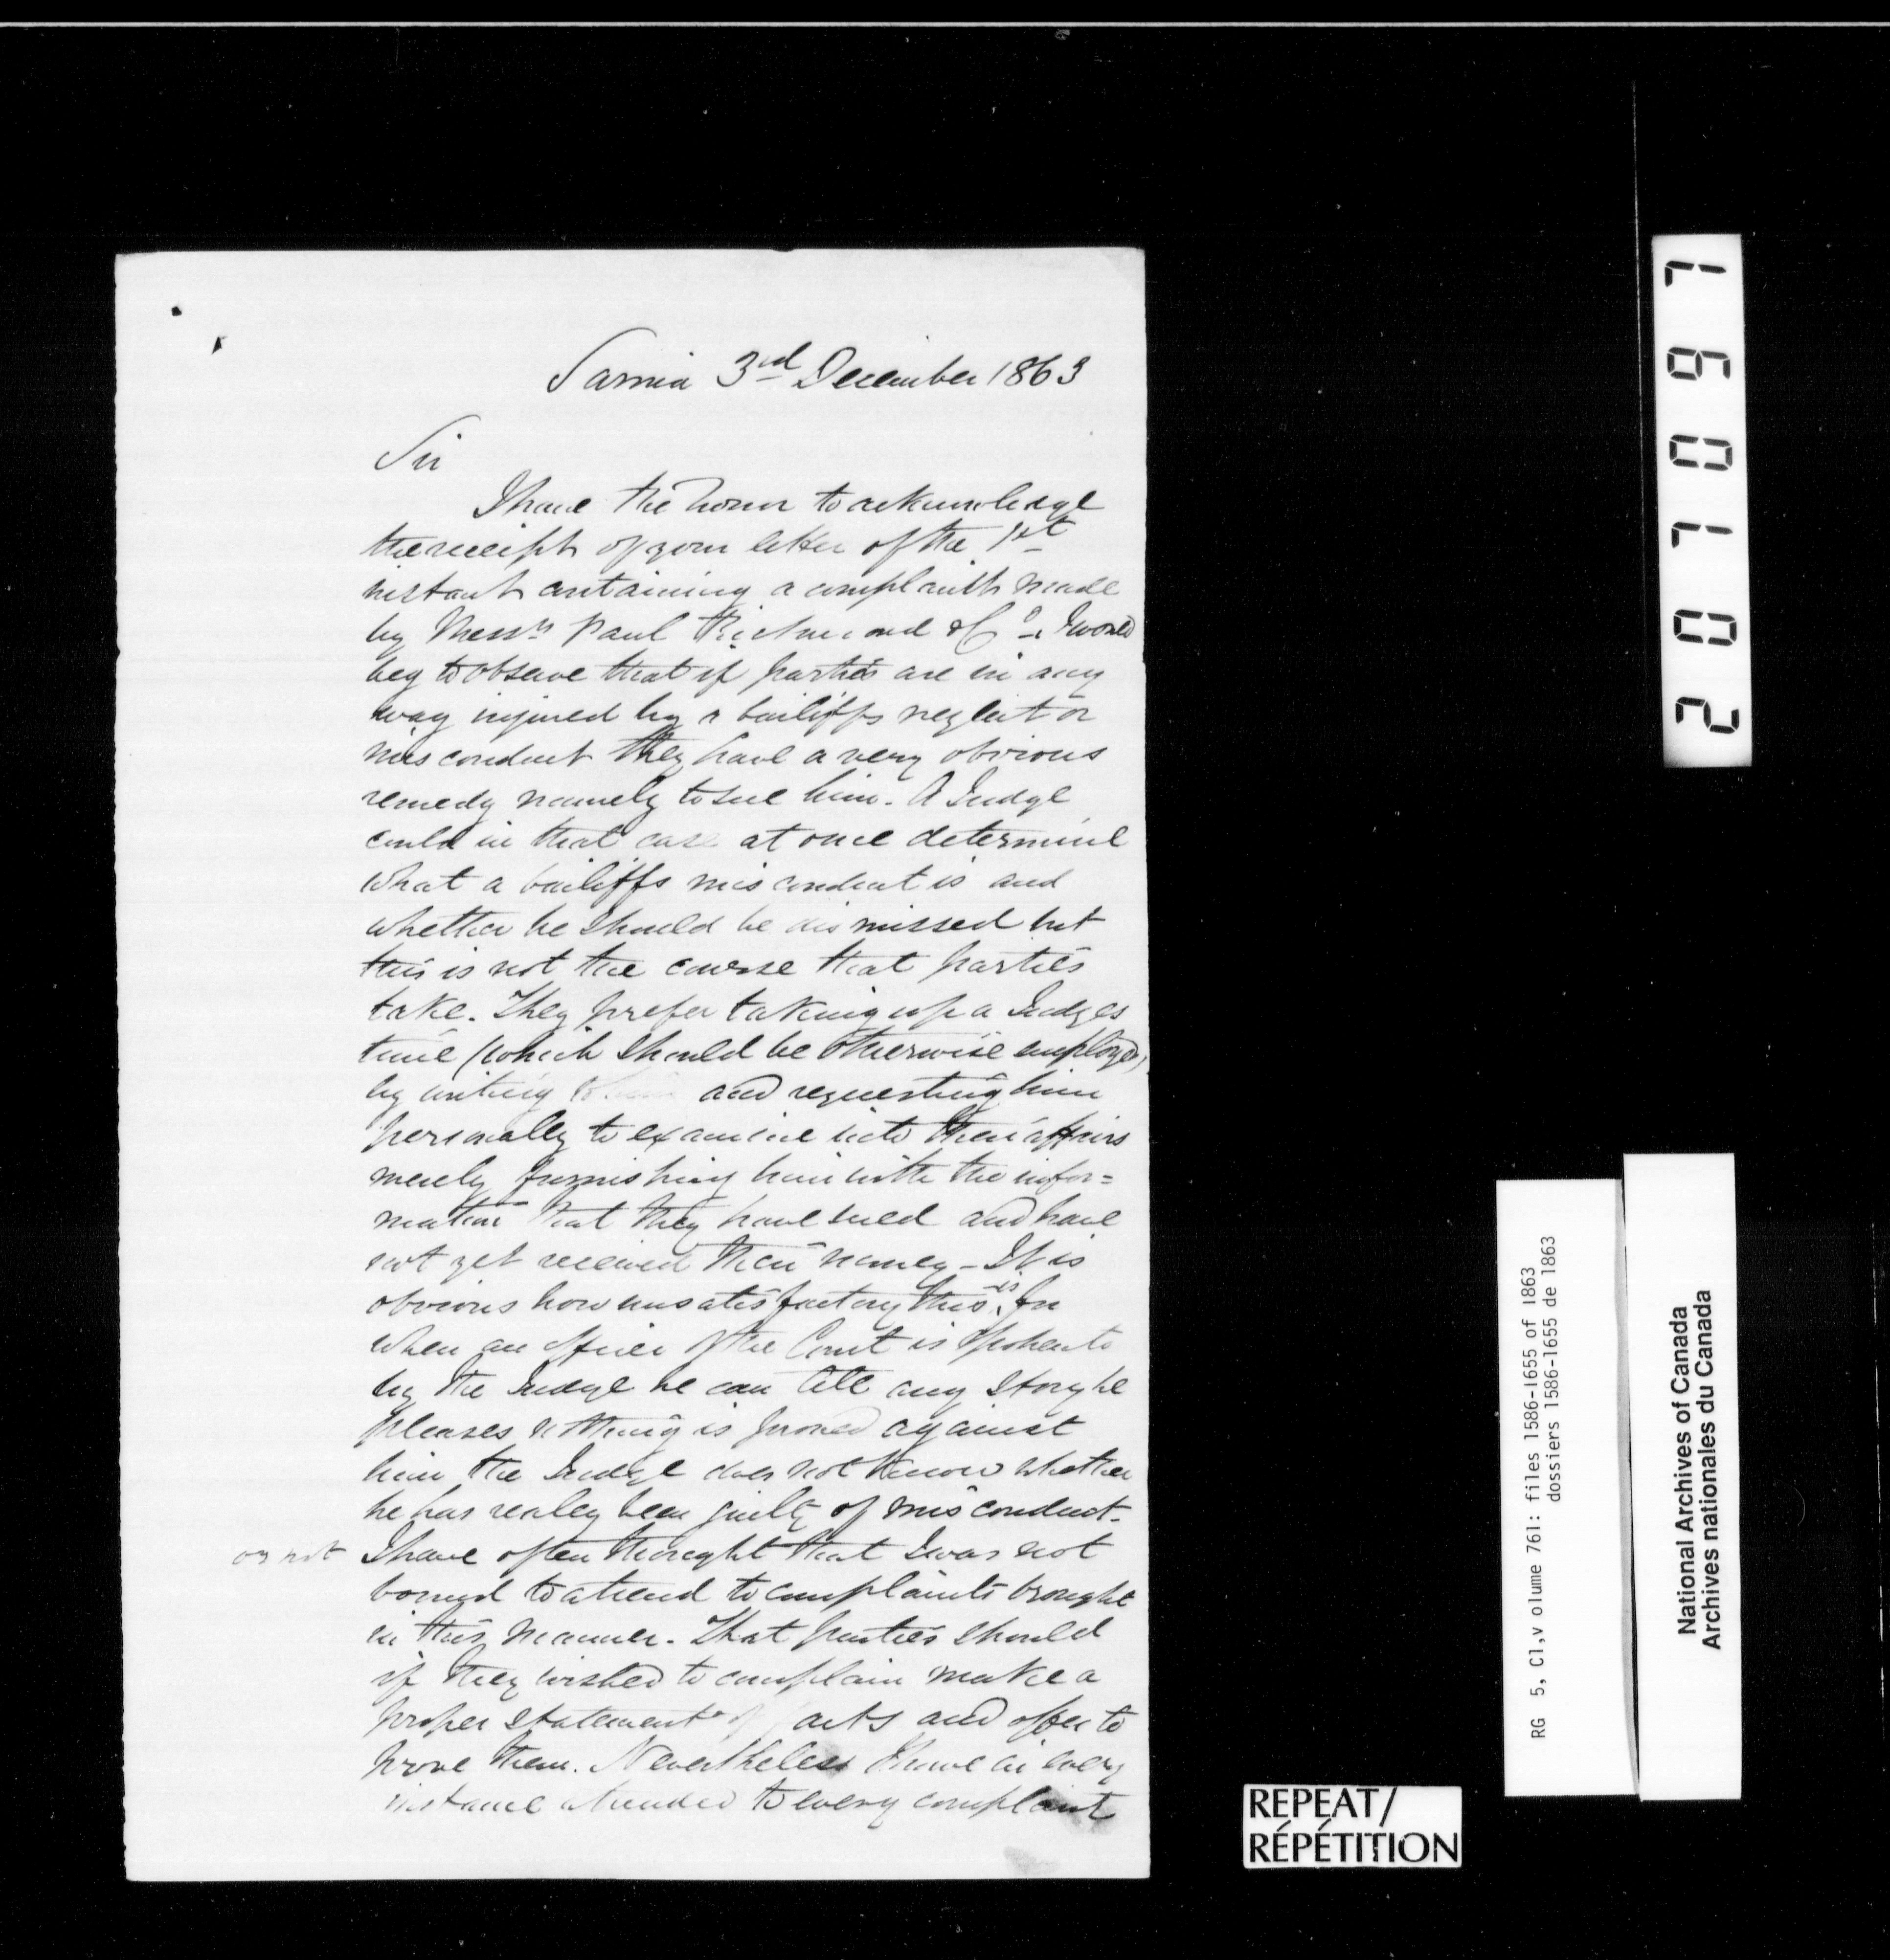 Sarnia 3rd December 1863
Sir
I have the honor to acknowledge
the receipt of your letter of the 1st
instant containing a complaint made
by Messrs Paul Richmond & Co - I would
beg to observe that if parties are in any
way injured by a bailiffs neglect or
misconduct they have a very obvious
remedy namely to sue him. A Judge
could in that case at once determine
what a bailiffs misconduct is and
whether he should be dismissed but
this is not the course that parties
take. They prefer taking up a Judges
time (which should be otherwise employed)
by writing to him and requesting him
personally to examine into their affairs
merely furnishing him with the infor=
mation that they have sued and have
not yet received their money - It is
obvious how unsatisfactory this is. For
when an officer of the Court is spoken to
by the Judge he can tell any story he
pleases nothing is proved against
him the Judge does not know whether
he has realey been guilty of misconduct-
or not I have often thought that I was not
bound to attend to complaints brought
in this manner. That parties should
if they wished to complain make a
proper statement of facts and offer to
prove them. Nevertheless I have in every
instance attended to every complaint
201097
RG 5, C1,v olume 761: files 1586-1655 of 1863
dossiers 1586-1655 de 1863
National Archives of Canada
Archives nationales du Canada
REPEAT/
RÉPÉTITION